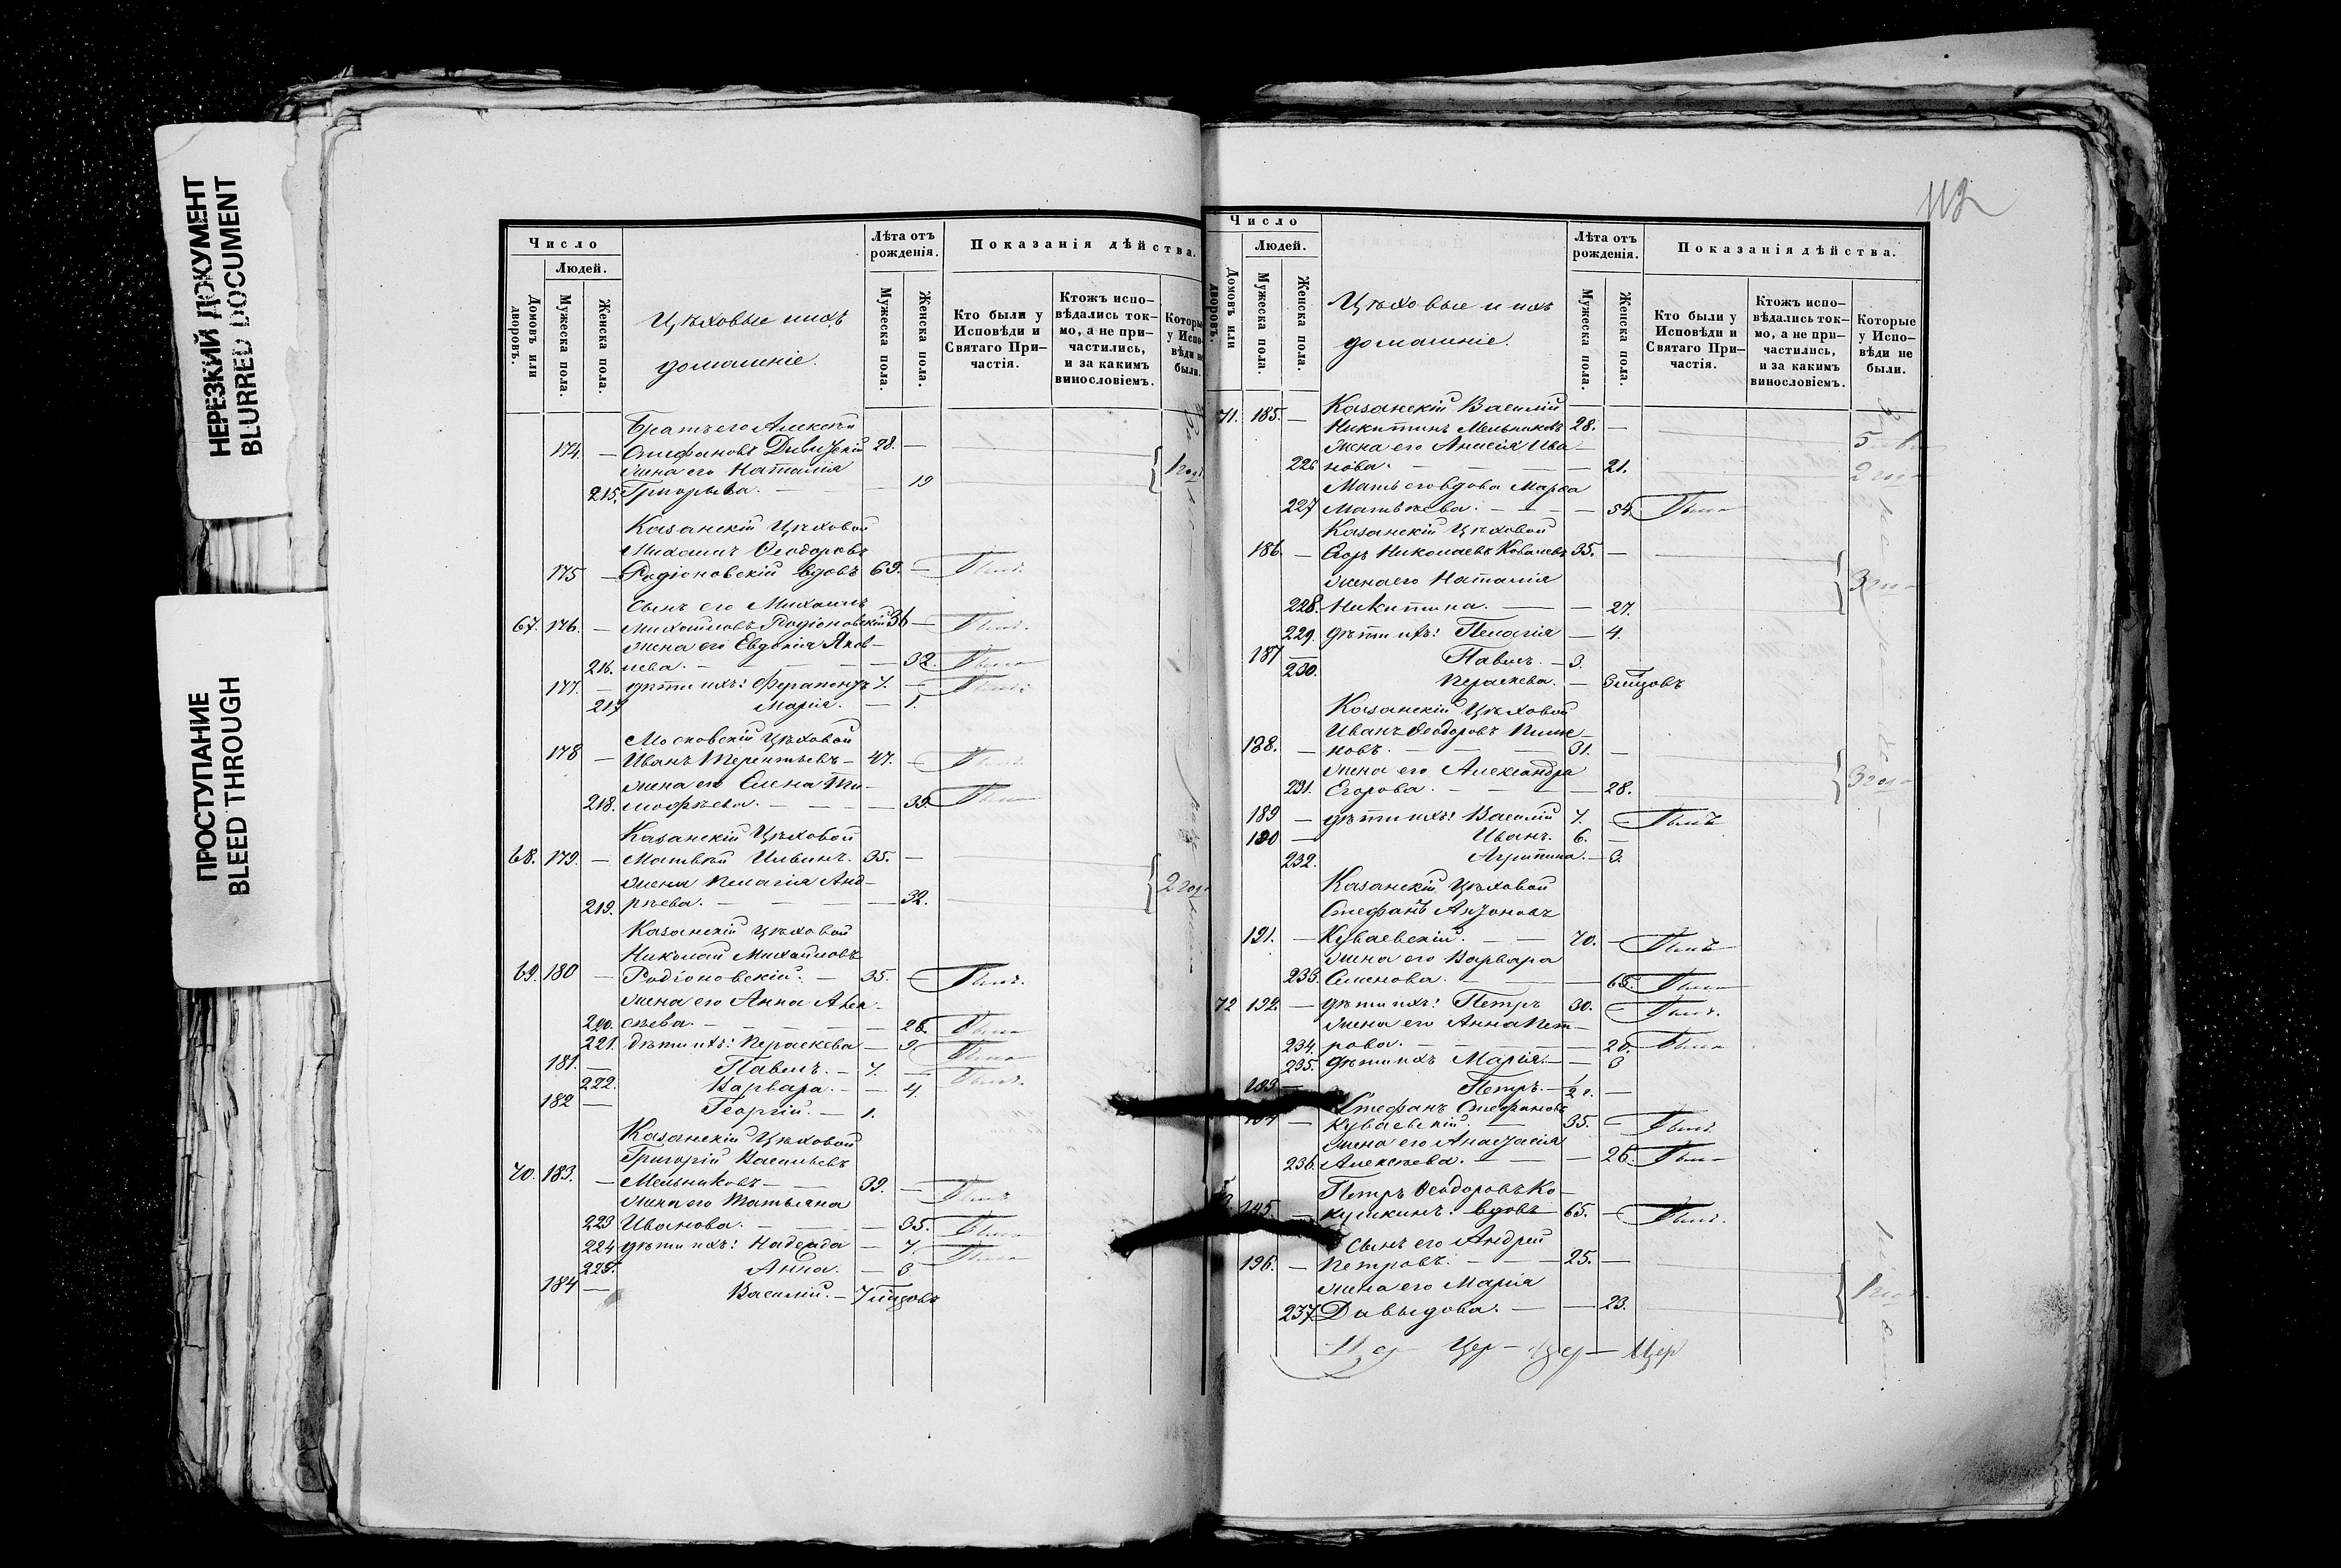 НЕРЕЗКИЙ ДОКУМЕНТ
BLURRED DOCUMENT
ПРОСТУПАНИЕ
BLEED THROUGH
Число
Людей.
Домовъ или дворовъ.
Мужеска пола.
Женска пола.
Цѣховые и ихъ
домашніе.
Лѣта отъ рожденія.
Мужеска пола.
Женска пола.
Показанія дѣйства.
Кто были у Исповѣди и Святаго Причастія.
Ктожъ исповѣдались токмо, а не причастились, и за какимъ винословіемъ.
Которые у Исповѣди не были.
Братъ его Алексѣй
174. — Стефановъ 28. —
жена его Наталія
215. Григорьева. — — 19
Казанскій Цѣховой
Михаилъ Ѳеодоровъ
175 — Родіоновскій вдовъ 69. — Былъ.
Сынъ его Михаилъ
67. 176. — Михайловъ Родіоновскій 36 — Былъ.
жена его Евдокія Яков-
216. лева. — — — 32. Была
177. — дѣти ихъ: Ферапонтъ 7. — Былъ.
217 Марія. — 1.
Московскій Цѣховой
178 — Иванъ Терентьевъ — 47. — Былъ.
жена его Елена Ти-
218. мофѣева. — — — 39. Была
Казанскій Цѣховой
68. 179. — Матвѣй Ильинъ. 35. —
жена Пелагія Анд-
219. рѣева. — — — 32.
2 год
Казанскій Цѣховой
Николай Михайловъ
69. 180 — Родіоновскій. — 35. — Былъ.
жена его Анна Алек-
220. сѣева. — — — 26. Была
221. дѣти ихъ: Параскева — 9. Была
181. — Павелъ. — 7. — Былъ.
222. Варвара. — — 4.
182 — Георгій. — 1.
Казанскій Цѣховой
Григорій Васильевъ
70. 183. — Мельниковъ — 39. — Былъ
жена его Татьяна
223 Иванова. — — 35. Была
224 дѣти ихъ: Надежда — 7. Была
225. Анна. — 3
184 — Василій. — 7 мѣсцовъ
112
Число
Людей.
Домовъ или дворовъ.
Мужеска пола.
Женска пола.
Цѣховые и ихъ
домашніе.
Лѣта отъ рожденія.
Мужеска пола.
Женска пола.
Показанія дѣйства.
Кто были у Исповѣди и Святаго Причастія.
Ктожъ исповѣдались токмо, а не причастились, и за какимъ винословіемъ.
Которые у Исповѣди не были.
71. 185. — Казанскій Василій
Никитинъ Мельниковъ 28. —
жена его Анисія Ива-
226 нова. — — — 21.
Мать его вдова Марѳа
227 Матвѣева. — — — 54. Была
Казанскій Цѣховой
186. — Егоръ Николаевъ Ковалевъ 35. —
жена его Наталія
228. Никитина. — — 27.
229. дѣти ихъ: Пелагія — 4.
187 — Павелъ. — 3.
230. Параскева. — 3 мѣсцовъ
Казанскій Цѣховой
Иванъ Ѳеодоровъ Пиме-
188. — новъ. — — — 31. —
жена его Александра
231. Егорова. — — — 28.
189 — дѣти ихъ: Василій 7. — Былъ
190 — Иванъ. 6. —
232. Агрипина. — 3.
Казанскій Цѣховой
Стефанъ Антоновъ
191. — Куваевскій. — — 70. — Былъ
жена его Варвара
233. Семенова. — — — 63. Была
72 192. — дѣти ихъ: Петръ 30. — Былъ.
жена его Анна Пет-
234. рова. — — — 20. Была
235. дѣти ихъ Марія. — — 3
193 — Петръ. — 1/2 г. —
Стефанъ Стефановъ
194 — Куваевскій. — 35. — Былъ.
жена его Анастасія
236. Алексѣева. — — — 26. Была
Петръ Ѳеодоровъ Ко-
195. — кушкинъ. вдовъ 65. — Былъ.
Сынъ его Андрей
196. — Петровъ. — — — 25. —
жена его Марія
237 Давыдова. — — 23.